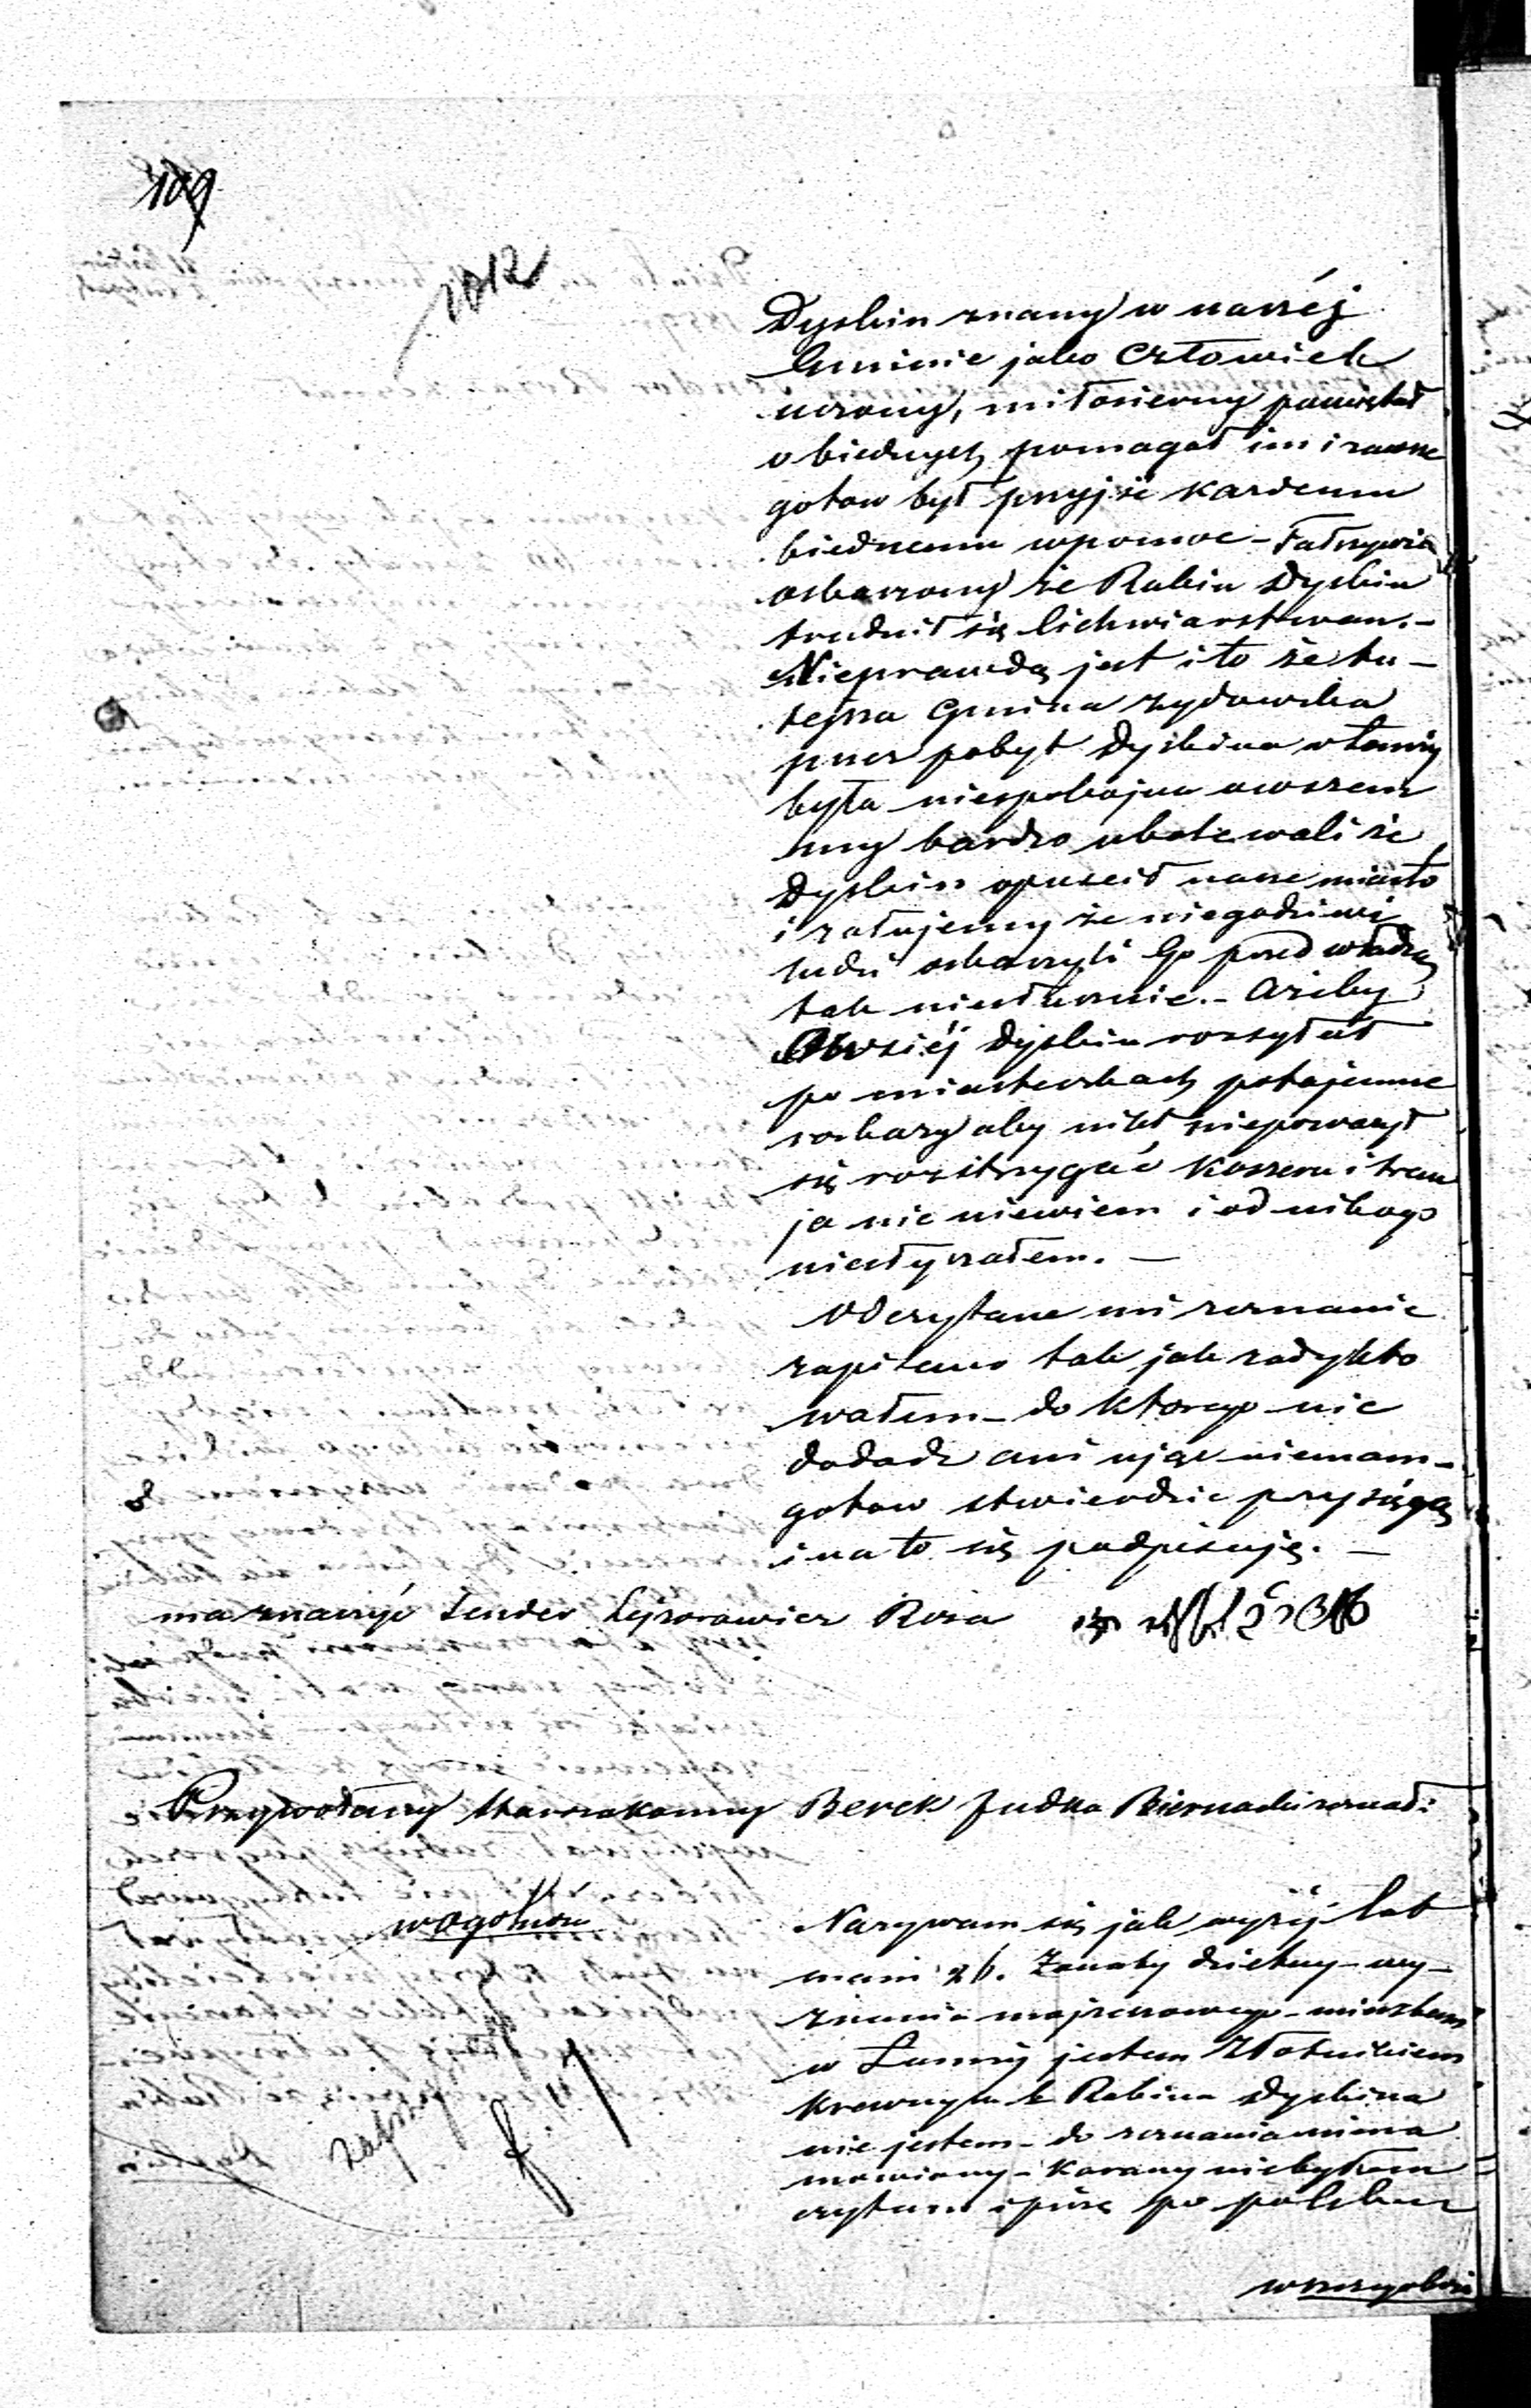 109
1012
Dyskin znany w naszéj
Gminie jako Człowiek
uczony, miłosierny pamiętał
o biednych pomagał im i zawsze
gotow był przyjść każdemu
biednemu w pomoc - Fałszywie
oskarzony że Rabin Dyskin
trudnił się lichwiarstwem. -
Nieprawdą jest i to że tu -
tejsza Gmina żydowska
przez pobyt Dyskina w Łomży
była niespokojna owszem
my bardzo ubolewali że
Dyskin opuscił nasze miasto
i żałujemy że niegodziwi
ludzi oskarzyli Go przed władzą
tak niesłusznie. - Ażeby
Owsiéj Dyskin rozsyłał
po miasteczkach potajemne
rozkazy aby nikt nieporważył
się rozstrzygać Koszeru i tref
ja nic niewiem i od nikogo
niesłyszałem. -
Odczytane mi zeznanie
zapisano tak jak zadykto
wałem - do ktorego nic
dodać ani ująć niemam -
gotow stwierdzić przysięgą
i na to się podpisuję. -
ma znaczyć Sender Lejzorowicz Roza
Przywołany Starozakonny Berek Judka Biernacki zeznał:
w ogolnosci
Nazywam się jak wyżéj lat
mam 26. Żonaty dzietny - wy -
znania mojżeszowego - mieszkam
w Łomży jestem Złotnikiem
krewnym Rabina Dyskina
nie jestem - do zeznania niena
mowiony - Karany niebyłem
czytam i piszę po polsku
w szczególnosci